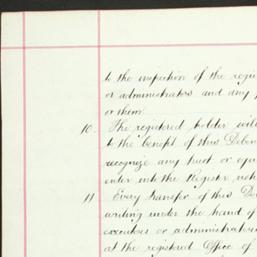 to the inspection of the regi
or administrators and any
or them
10. The registered holder will
to the benefit of this Deben
recognize any trust or equi
enter into the Register note
11 Every transfer of this De
writing under the hand of
executors or administrators
at the registered Office of